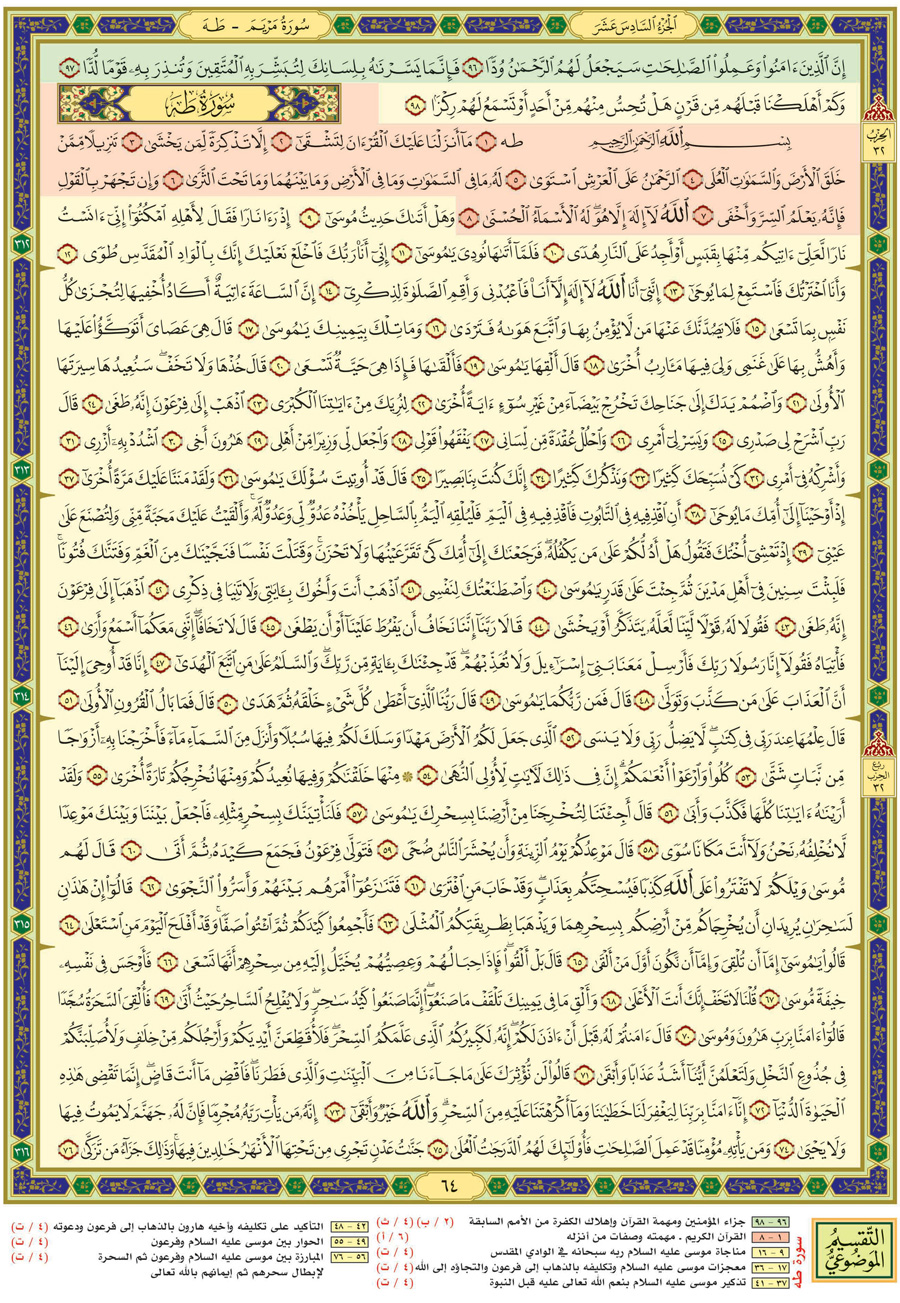 الجزء السادس عشر
سورة مريم - طه
إِنَّ ٱلَّذِينَ ءَامَنُوا۟ وَعَمِلُوا۟ ٱلصَّٰلِحَٰتِ سَيَجْعَلُ لَهُمُ ٱلرَّحْمَٰنُ وُدًّا ٩٦ فَإِنَّمَا يَسَّرْنَٰهُ بِلِسَانِكَ لِتُبَشِّرَ بِهِ ٱلْمُتَّقِينَ وَتُنذِرَ بِهِۦ قَوْمًا لُّدًّا ٩٧
وَكَمْ أَهْلَكْنَا قَبْلَهُم مِّن قَرْنٍ هَلْ تُحِسُّ مِنْهُم مِّنْ أَحَدٍ أَوْ تَسْمَعُ لَهُمْ رِكْزًۢا ٩٨ سورة طه
بِسْمِ ٱللَّهِ ٱلرَّحْمَٰنِ ٱلرَّحِيمِ طه ١ مَآ أَنزَلْنَا عَلَيْكَ ٱلْقُرْءَانَ لِتَشْقَىٰٓ ٢ إِلَّا تَذْكِرَةً لِّمَن يَخْشَىٰ ٣ تَنزِيلًا مِّمَّنْ
خَلَقَ ٱلْأَرْضَ وَٱلسَّمَٰوَٰتِ ٱلْعُلَى ٤ ٱلرَّحْمَٰنُ عَلَى ٱلْعَرْشِ ٱسْتَوَىٰ ٥ لَهُۥ مَا فِى ٱلسَّمَٰوَٰتِ وَمَا فِى ٱلْأَرْضِ وَمَا بَيْنَهُمَا وَمَا تَحْتَ ٱلثَّرَىٰ ٦ وَإِن تَجْهَرْ بِٱلْقَوْلِ
فَإِنَّهُۥ يَعْلَمُ ٱلسِّرَّ وَأَخْفَى ٧ ٱللَّهُ لَآ إِلَٰهَ إِلَّا هُوَ ۖ لَهُ ٱلْأَسْمَآءُ ٱلْحُسْنَىٰ ٨ وَهَلْ أَتَىٰكَ حَدِيثُ مُوسَىٰٓ ٩ إِذْ رَءَا نَارًا فَقَالَ لِأَهْلِهِ ٱمْكُثُوٓا۟ إِنِّىٓ ءَانَسْتُ
نَارًا لَّعَلِّىٓ ءَاتِيكُم مِّنْهَا بِقَبَسٍ أَوْ أَجِدُ عَلَى ٱلنَّارِ هُدًى ١٠ فَلَمَّآ أَتَىٰهَا نُودِىَ يَٰمُوسَىٰٓ ١١ إِنِّىٓ أَنَا۠ رَبُّكَ فَٱخْلَعْ نَعْلَيْكَ ۖ إِنَّكَ بِٱلْوَادِ ٱلْمُقَدَّسِ طُوًى ١٢
وَأَنَا ٱخْتَرْتُكَ فَٱسْتَمِعْ لِمَا يُوحَىٰٓ ١٣ إِنَّنِىٓ أَنَا ٱللَّهُ لَآ إِلَٰهَ إِلَّآ أَنَا۠ فَٱعْبُدْنِى وَأَقِمِ ٱلصَّلَوٰةَ لِذِكْرِىٓ ١٤ إِنَّ ٱلسَّاعَةَ ءَاتِيَةٌ أَكَادُ أُخْفِيهَا لِتُجْزَىٰ كُلُّ
نَفْسٍۭ بِمَا تَسْعَىٰ ١٥ فَلَا يَصُدَّنَّكَ عَنْهَا مَن لَّا يُؤْمِنُ بِهَا وَٱتَّبَعَ هَوَىٰهُ فَتَرْدَىٰ ١٦ وَمَا تِلْكَ بِيَمِينِكَ يَٰمُوسَىٰ ١٧ قَالَ هِىَ عَصَاىَ أَتَوَكَّؤُا۟ عَلَيْهَا
وَأَهُشُّ بِهَا عَلَىٰ غَنَمِى وَلِىَ فِيهَا مَـَٔارِبُ أُخْرَىٰ ١٨ قَالَ أَلْقِهَا يَٰمُوسَىٰ ١٩ فَأَلْقَىٰهَا فَإِذَا هِىَ حَيَّةٌ تَسْعَىٰ ٢٠ قَالَ خُذْهَا وَلَا تَخَفْ ۖ سَنُعِيدُهَا سِيرَتَهَا
ٱلْأُولَىٰ ٢١ وَٱضْمُمْ يَدَكَ إِلَىٰ جَنَاحِكَ تَخْرُجْ بَيْضَآءَ مِنْ غَيْرِ سُوٓءٍ ءَايَةً أُخْرَىٰ ٢٢ لِنُرِيَكَ مِنْ ءَايَٰتِنَا ٱلْكُبْرَى ٢٣ ٱذْهَبْ إِلَىٰ فِرْعَوْنَ إِنَّهُۥ طَغَىٰ ٢٤ قَالَ
رَبِّ ٱشْرَحْ لِى صَدْرِى ٢٥ وَيَسِّرْ لِىٓ أَمْرِى ٢٦ وَٱحْلُلْ عُقْدَةً مِّن لِّسَانِى ٢٧ يَفْقَهُوا۟ قَوْلِى ٢٨ وَٱجْعَل لِّى وَزِيرًا مِّنْ أَهْلِى ٢٩ هَٰرُونَ أَخِى ٣٠ ٱشْدُدْ بِهِۦٓ أَزْرِى ٣١
وَأَشْرِكْهُ فِىٓ أَمْرِى ٣٢ كَىْ نُسَبِّحَكَ كَثِيرًا ٣٣ وَنَذْكُرَكَ كَثِيرًا ٣٤ إِنَّكَ كُنتَ بِنَا بَصِيرًا ٣٥ قَالَ قَدْ أُوتِيتَ سُؤْلَكَ يَٰمُوسَىٰ ٣٦ وَلَقَدْ مَنَنَّا عَلَيْكَ مَرَّةً أُخْرَىٰٓ ٣٧
إِذْ أَوْحَيْنَآ إِلَىٰٓ أُمِّكَ مَا يُوحَىٰٓ ٣٨ أَنِ ٱقْذِفِيهِ فِى ٱلتَّابُوتِ فَٱقْذِفِيهِ فِى ٱلْيَمِّ فَلْيُلْقِهِ ٱلْيَمُّ بِٱلسَّاحِلِ يَأْخُذْهُ عَدُوٌّ لِّى وَعَدُوٌّ لَّهُۥ ۚ وَأَلْقَيْتُ عَلَيْكَ مَحَبَّةً مِّنِّى وَلِتُصْنَعَ عَلَىٰ
عَيْنِىٓ ٣٩ إِذْ تَمْشِىٓ أُخْتُكَ فَتَقُولُ هَلْ أَدُلُّكُمْ عَلَىٰ مَن يَكْفُلُهُۥ ۖ فَرَجَعْنَٰكَ إِلَىٰٓ أُمِّكَ كَىْ تَقَرَّ عَيْنُهَا وَلَا تَحْزَنَ ۚ وَقَتَلْتَ نَفْسًا فَنَجَّيْنَٰكَ مِنَ ٱلْغَمِّ وَفَتَنَّٰكَ فُتُونًا ۚ
فَلَبِثْتَ سِنِينَ فِىٓ أَهْلِ مَدْيَنَ ثُمَّ جِئْتَ عَلَىٰ قَدَرٍ يَٰمُوسَىٰ ٤٠ وَٱصْطَنَعْتُكَ لِنَفْسِى ٤١ ٱذْهَبْ أَنتَ وَأَخُوكَ بِـَٔايَٰتِى وَلَا تَنِيَا فِى ذِكْرِى ٤٢ ٱذْهَبَآ إِلَىٰ فِرْعَوْنَ
إِنَّهُۥ طَغَىٰ ٤٣ فَقُولَا لَهُۥ قَوْلًا لَّيِّنًا لَّعَلَّهُۥ يَتَذَكَّرُ أَوْ يَخْشَىٰ ٤٤ قَالَا رَبَّنَآ إِنَّنَا نَخَافُ أَن يَفْرُطَ عَلَيْنَآ أَوْ أَن يَطْغَىٰ ٤٥ قَالَ لَا تَخَافَآ ۖ إِنَّنِى مَعَكُمَآ أَسْمَعُ وَأَرَىٰ ٤٦
فَأْتِيَاهُ فَقُولَآ إِنَّا رَسُولَا رَبِّكَ فَأَرْسِلْ مَعَنَا بَنِىٓ إِسْرَٰٓءِيلَ وَلَا تُعَذِّبْهُمْ ۖ قَدْ جِئْنَٰكَ بِـَٔايَةٍ مِّن رَّبِّكَ ۖ وَٱلسَّلَٰمُ عَلَىٰ مَنِ ٱتَّبَعَ ٱلْهُدَىٰٓ ٤٧ إِنَّا قَدْ أُوحِىَ إِلَيْنَآ
أَنَّ ٱلْعَذَابَ عَلَىٰ مَن كَذَّبَ وَتَوَلَّىٰ ٤٨ قَالَ فَمَن رَّبُّكُمَا يَٰمُوسَىٰ ٤٩ قَالَ رَبُّنَا ٱلَّذِىٓ أَعْطَىٰ كُلَّ شَىْءٍ خَلْقَهُۥ ثُمَّ هَدَىٰ ٥٠ قَالَ فَمَا بَالُ ٱلْقُرُونِ ٱلْأُولَىٰ ٥١
قَالَ عِلْمُهَا عِندَ رَبِّى فِى كِتَٰبٍ ۖ لَّا يَضِلُّ رَبِّى وَلَا يَنسَى ٥٢ ٱلَّذِى جَعَلَ لَكُمُ ٱلْأَرْضَ مَهْدًا وَسَلَكَ لَكُمْ فِيهَا سُبُلًا وَأَنزَلَ مِنَ ٱلسَّمَآءِ مَآءً فَأَخْرَجْنَا بِهِۦٓ أَزْوَٰجًا
مِّن نَّبَاتٍ شَتَّىٰ ٥٣ كُلُوا۟ وَٱرْعَوْا۟ أَنْعَٰمَكُمْ ۗ إِنَّ فِى ذَٰلِكَ لَءَايَٰتٍ لِّأُو۟لِى ٱلنُّهَىٰ ٥٤ ۞ مِنْهَا خَلَقْنَٰكُمْ وَفِيهَا نُعِيدُكُمْ وَمِنْهَا نُخْرِجُكُمْ تَارَةً أُخْرَىٰ ٥٥ وَلَقَدْ
أَرَيْنَٰهُ ءَايَٰتِنَا كُلَّهَا فَكَذَّبَ وَأَبَىٰ ٥٦ قَالَ أَجِئْتَنَا لِتُخْرِجَنَا مِنْ أَرْضِنَا بِسِحْرِكَ يَٰمُوسَىٰ ٥٧ فَلَنَأْتِيَنَّكَ بِسِحْرٍ مِّثْلِهِۦ فَٱجْعَلْ بَيْنَنَا وَبَيْنَكَ مَوْعِدًا
لَّا نُخْلِفُهُۥ نَحْنُ وَلَآ أَنتَ مَكَانًا سُوًى ٥٨ قَالَ مَوْعِدُكُمْ يَوْمُ ٱلزِّينَةِ وَأَن يُحْشَرَ ٱلنَّاسُ ضُحًى ٥٩ فَتَوَلَّىٰ فِرْعَوْنُ فَجَمَعَ كَيْدَهُۥ ثُمَّ أَتَىٰ ٦٠ قَالَ لَهُم
مُّوسَىٰ وَيْلَكُمْ لَا تَفْتَرُوا۟ عَلَى ٱللَّهِ كَذِبًا فَيُسْحِتَكُم بِعَذَابٍ ۖ وَقَدْ خَابَ مَنِ ٱفْتَرَىٰ ٦١ فَتَنَٰزَعُوٓا۟ أَمْرَهُم بَيْنَهُمْ وَأَسَرُّوا۟ ٱلنَّجْوَىٰ ٦٢ قَالُوٓا۟ إِنْ هَٰذَٰنِ
لَسَٰحِرَٰنِ يُرِيدَانِ أَن يُخْرِجَاكُم مِّنْ أَرْضِكُم بِسِحْرِهِمَا وَيَذْهَبَا بِطَرِيقَتِكُمُ ٱلْمُثْلَىٰ ٦٣ فَأَجْمِعُوا۟ كَيْدَكُمْ ثُمَّ ٱئْتُوا۟ صَفًّا ۚ وَقَدْ أَفْلَحَ ٱلْيَوْمَ مَنِ ٱسْتَعْلَىٰ ٦٤
قَالُوا۟ يَٰمُوسَىٰٓ إِمَّآ أَن تُلْقِىَ وَإِمَّآ أَن نَّكُونَ أَوَّلَ مَنْ أَلْقَىٰ ٦٥ قَالَ بَلْ أَلْقُوا۟ ۖ فَإِذَا حِبَالُهُمْ وَعِصِيُّهُمْ يُخَيَّلُ إِلَيْهِ مِن سِحْرِهِمْ أَنَّهَا تَسْعَىٰ ٦٦ فَأَوْجَسَ فِى نَفْسِهِۦ
خِيفَةً مُّوسَىٰ ٦٧ قُلْنَا لَا تَخَفْ إِنَّكَ أَنتَ ٱلْأَعْلَىٰ ٦٨ وَأَلْقِ مَا فِى يَمِينِكَ تَلْقَفْ مَا صَنَعُوٓا۟ ۖ إِنَّمَا صَنَعُوا۟ كَيْدُ سَٰحِرٍ ۖ وَلَا يُفْلِحُ ٱلسَّاحِرُ حَيْثُ أَتَىٰ ٦٩ فَأُلْقِىَ ٱلسَّحَرَةُ سُجَّدًا
قَالُوٓا۟ ءَامَنَّا بِرَبِّ هَٰرُونَ وَمُوسَىٰ ٧٠ قَالَ ءَامَنتُمْ لَهُۥ قَبْلَ أَنْ ءَاذَنَ لَكُمْ ۖ إِنَّهُۥ لَكَبِيرُكُمُ ٱلَّذِى عَلَّمَكُمُ ٱلسِّحْرَ ۖ فَلَأُقَطِّعَنَّ أَيْدِيَكُمْ وَأَرْجُلَكُم مِّنْ خِلَٰفٍ وَلَأُصَلِّبَنَّكُمْ
فِى جُذُوعِ ٱلنَّخْلِ وَلَتَعْلَمُنَّ أَيُّنَآ أَشَدُّ عَذَابًا وَأَبْقَىٰ ٧١ قَالُوا۟ لَن نُّؤْثِرَكَ عَلَىٰ مَا جَآءَنَا مِنَ ٱلْبَيِّنَٰتِ وَٱلَّذِى فَطَرَنَا ۖ فَٱقْضِ مَآ أَنتَ قَاضٍ ۖ إِنَّمَا تَقْضِى هَٰذِهِ
ٱلْحَيَوٰةَ ٱلدُّنْيَآ ٧٢ إِنَّآ ءَامَنَّا بِرَبِّنَا لِيَغْفِرَ لَنَا خَطَٰيَٰنَا وَمَآ أَكْرَهْتَنَا عَلَيْهِ مِنَ ٱلسِّحْرِ ۗ وَٱللَّهُ خَيْرٌ وَأَبْقَىٰٓ ٧٣ إِنَّهُۥ مَن يَأْتِ رَبَّهُۥ مُجْرِمًا فَإِنَّ لَهُۥ جَهَنَّمَ لَا يَمُوتُ فِيهَا
وَلَا يَحْيَىٰ ٧٤ وَمَن يَأْتِهِۦ مُؤْمِنًا قَدْ عَمِلَ ٱلصَّٰلِحَٰتِ فَأُو۟لَٰٓئِكَ لَهُمُ ٱلدَّرَجَٰتُ ٱلْعُلَىٰ ٧٥ جَنَّٰتُ عَدْنٍ تَجْرِى مِن تَحْتِهَا ٱلْأَنْهَٰرُ خَٰلِدِينَ فِيهَا ۚ وَذَٰلِكَ جَزَآءُ مَن تَزَكَّىٰ ٧٦
الحزب
٣٢
ربع
الحزب
٣٢
٣١٢
٣١٣
٣١٤
٣١٥
٣١٦
٦٤
التقسيم
الموضوعي
٩٦ - ٩٨ جزاء المؤمنين ومهمة القرآن وإهلاك الكفرة من الأمم السابقة (٢ / ب) (٤ / ث)
سورة طه
١ - ٨ القرآن الكريم . مهمته وصفات من أنزله (٦ / أ)
٩ - ١٦ مناجاة موسى عليه السلام ربه سبحانه في الوادي المقدس (٤ / ت)
١٧ - ٣٦ معجزات موسى عليه السلام وتكليفه بالذهاب إلى فرعون والتجاؤه إلى الله (٤ / ت)
٣٧ - ٤١ تذكير موسى عليه السلام بنعم الله تعالى عليه قبل النبوة (٤ / ت)
٤٢ - ٤٨ التأكيد على تكليفه وأخيه هارون بالذهاب إلى فرعون ودعوته (٤ / ت)
٤٩ - ٥٥ الحوار بين موسى عليه السلام وفرعون (٤ / ت)
٥٦ - ٧٦ المبارزة بين موسى عليه السلام وفرعون ثم السحرة (٤ / ت)
لإبطال سحرهم ثم إيمانهم بالله تعالى